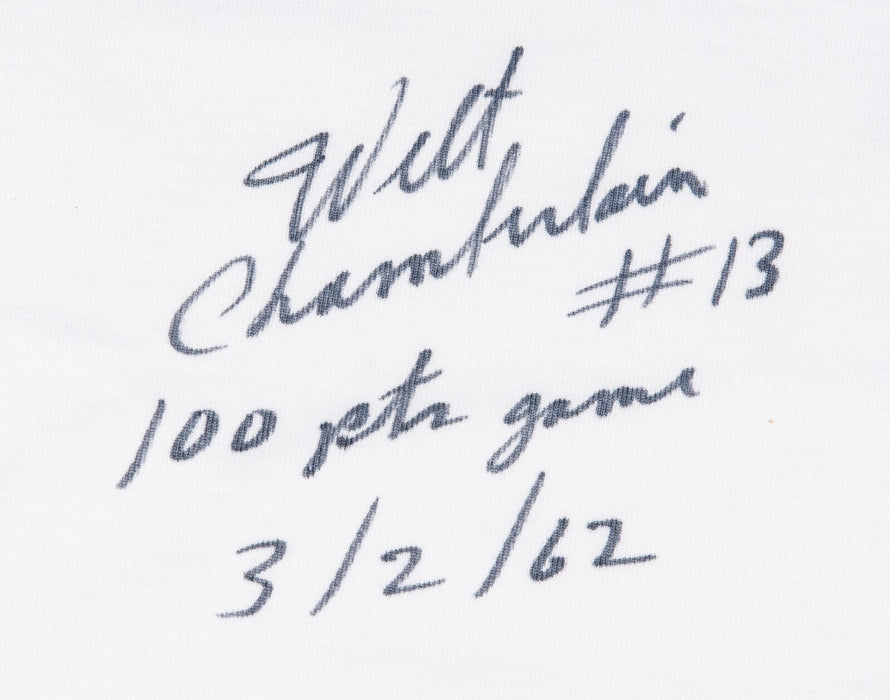 Wilt
Chamberlain
#13
100 pts game
3/2/62